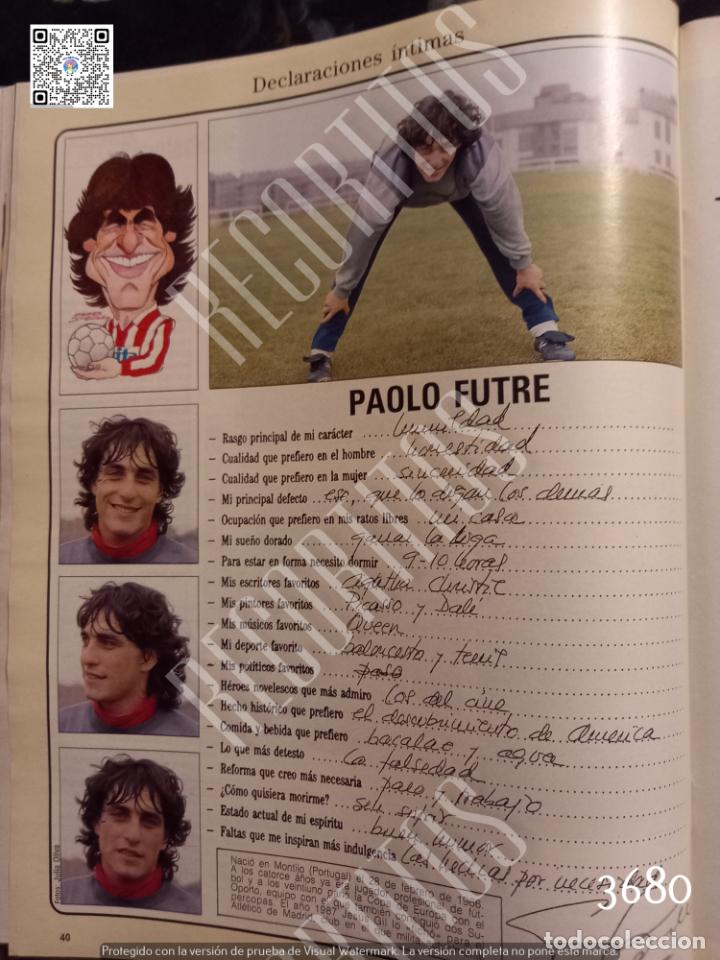 Declaraciones íntimas
PAOLO FUTRE
– Rasgo principal de mi carácter ..... humildad
– Cualidad que prefiero en el hombre .. honestidad
– Cualidad que prefiero en la mujer .... sinceridad
– Mi principal defecto .. es, que lo digan los demás
– Ocupación que prefiero en mis ratos libres .. mi casa
– Mi sueño dorado .... ganar la liga
– Para estar en forma necesito dormir .. 9-10 horas
– Mis escritores favoritos .... Agatha Christie
– Mis pintores favoritos .... Picasso y Dalí
– Mis músicos favoritos .... Queen
– Mi deporte favorito .... baloncesto y tenis
– Mis políticos favoritos .... paso
– Héroes novelescos que más admiro .. Los del cine
– Hecho histórico que prefiero el descubrimiento de America
– Comida y bebida que prefiero .. bacalao y agua
– Lo que más detesto .... La falsedad
– Reforma que creo más necesaria .. paro y trabajo
– ¿Cómo quisiera morirme? ... sin sufrir
– Estado actual de mi espíritu .... buen humor
– Faltas que me inspiran más indulgencia Las hechas por necesidad
Nació en Montijo (Portugal) el 28 de febrero de 1966.
A los catorce años ya era jugador profesional de fút-
bol y a los veintiuno ganó la Copa de Europa con el
Oporto, equipo con el que también consiguió dos Su-
percopas. El año 1987, Jesús Gil lo fichó para el
Atlético de Madrid, club en el que milita
Fotos: Julia Oliva
40
RECORTITOS
RECORTITOS
3680
todocoleccion
Protegido con la versión de prueba de Visual Watermark. La versión completa no pone esta marca.